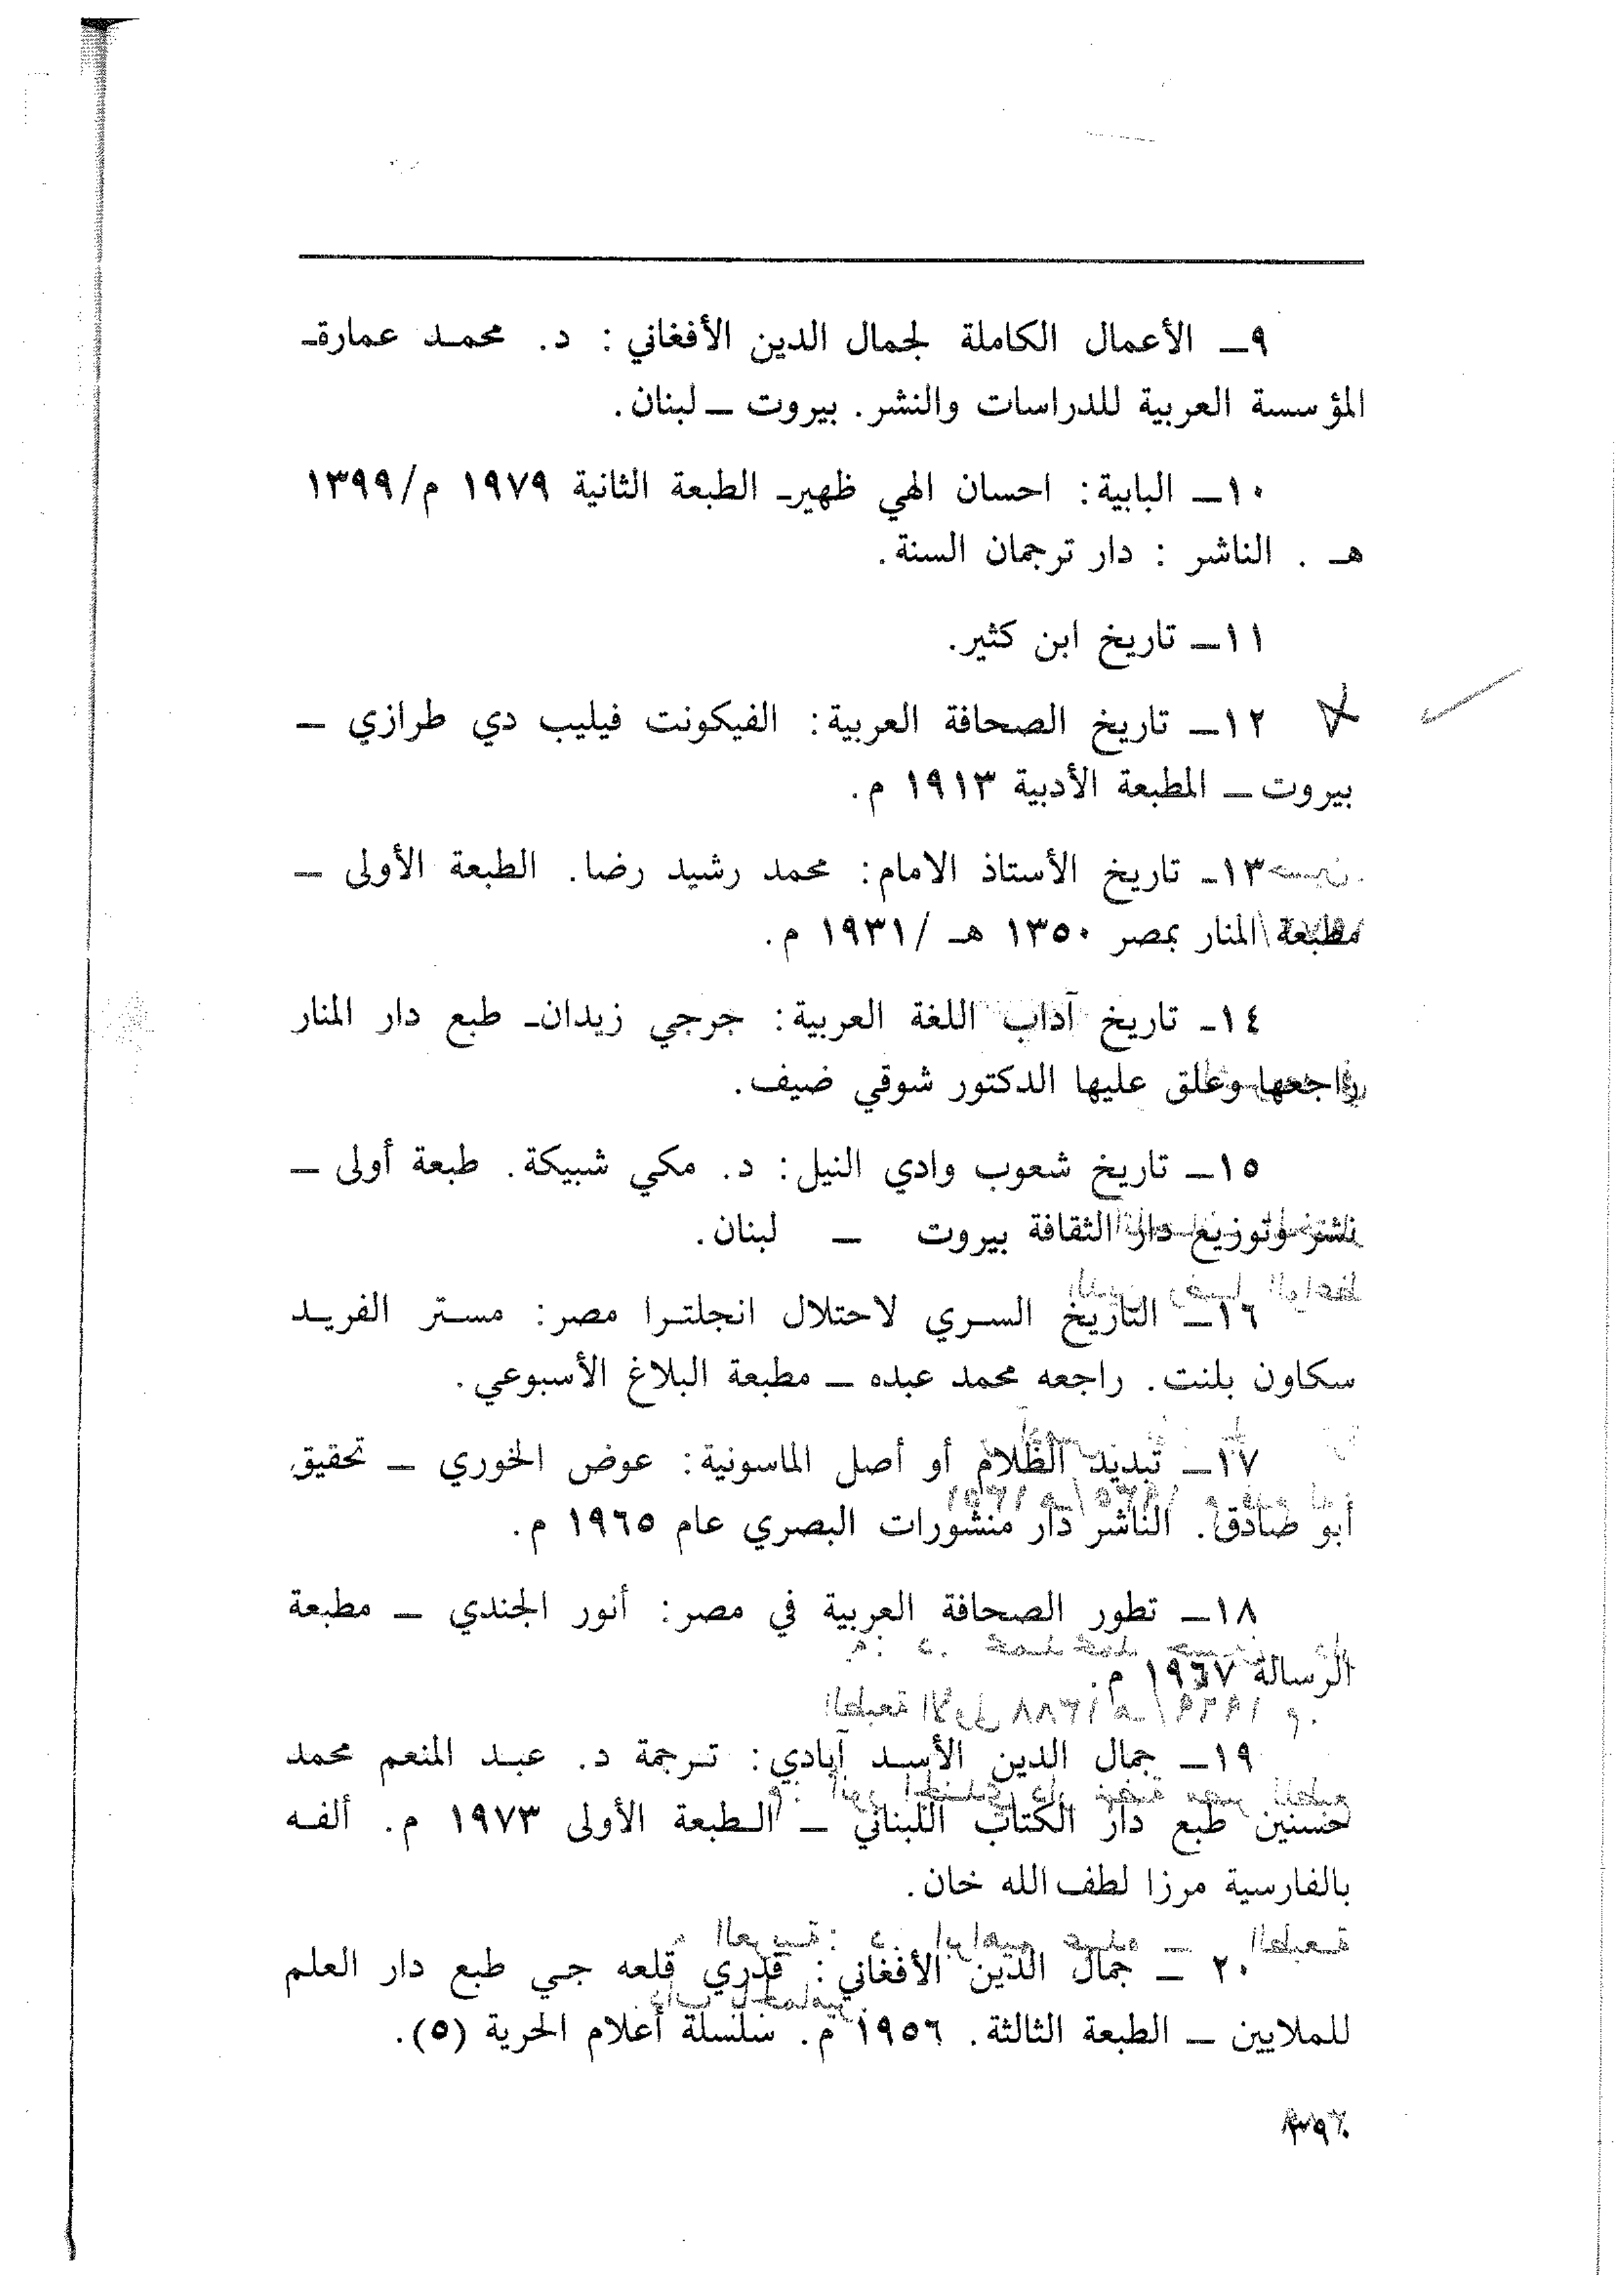 ٩ـ الأعمال الكاملة لجمال الدين الأفغاني : د. محمد عمارةـ
المؤسسة العربية للدراسات والنشر. بيروت ـ لبنان.
١٠ـ البابية: احسان الهي ظهيرـ الطبعة الثانية ١٩٧٩ م/١٣٩٩
هـ . الناشر : دار ترجمان السنة.
١١ـ تاريخ ابن كثير.
١٢ـ تاريخ الصحافة العربية: الفيكونت فيليب دي طرازي ـ
بيروت ـ المطبعة الأدبية ١٩١٣ م.
١٣ـ تاريخ الأستاذ الامام: محمد رشيد رضا. الطبعة الأولى ـ
مطبعة المنار بمصر ١٣٥٠ هـ /١٩٣١ م.
١٤ـ تاريخ آداب اللغة العربية: جرجي زيدانـ طبع دار المنار
راجعها وعلق عليها الدكتور شوقي ضيف.
١٥ـ تاريخ شعوب وادي النيل: د. مكي شبيكة. طبعة أولى ـ
نشر وتوزيع دار الثقافة بيروت ـ لبنان.
١٦ـ التاريخ السري لاحتلال انجلترا مصر: مستر الفريد
سكاون بلنت. راجعه محمد عبده ـ مطبعة البلاغ الأسبوعي.
١٧ـ تبديد الظلام أو أصل الماسونية: عوض الخوري ـ تحقيق
أبو صادق. الناشر دار منشورات البصري عام ١٩٦٥ م.
١٨ـ تطور الصحافة العربية في مصر: أنور الجندي ـ مطبعة
الرسالة ١٩٦٧ م.
١٩ـ جمال الدين الأسد آبادي: ترجمة د. عبد المنعم محمد
حسنين طبع دار الكتاب اللبناني ـ الطبعة الأولى ١٩٧٣ م. ألفه
بالفارسية مرزا لطف الله خان.
٢٠ ـ جمال الدين الأفغاني: قدري قلعه جي طبع دار العلم
للملايين ـ الطبعة الثالثة. ١٩٥٦ م. سلسلة أعلام الحرية (٥).